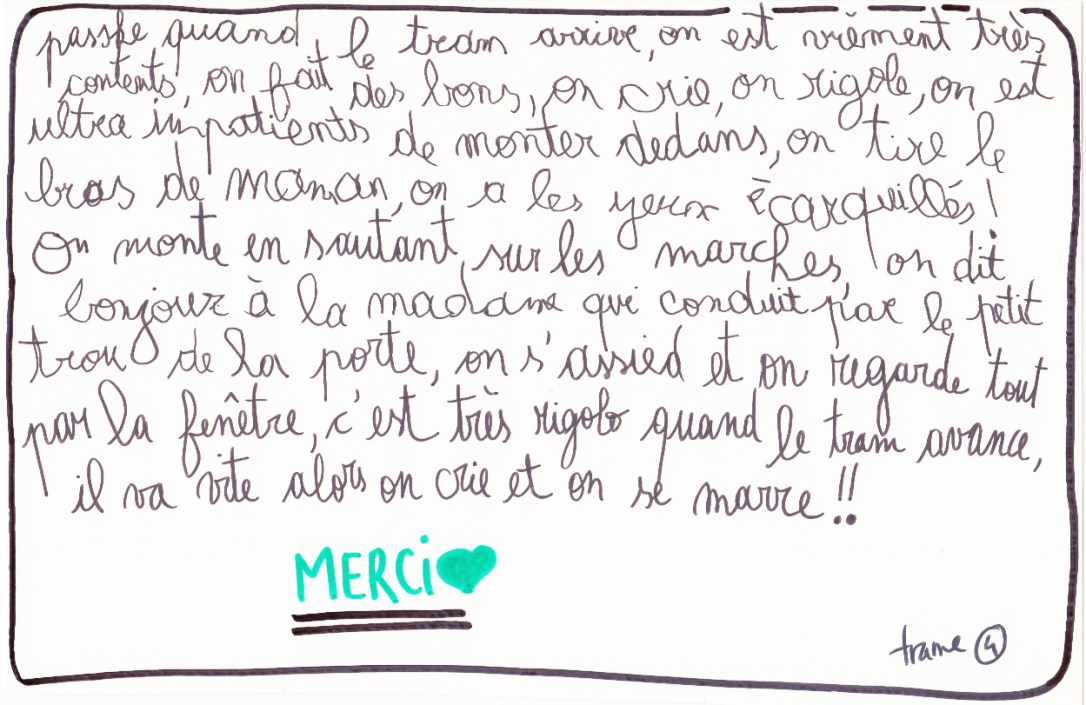 passke quand le tram arrive, on est vrèment très
contents, on fait des bons, on crie, on rigole, on est
ultra inpatients de monter dedans, on tire le
bras de maman, on a les yeux écarquillés!
On monte en sautant sur les marches, on dit
bonjour à la madame qui conduit par le petit
trou de la porte, on s'assied et on regarde tout
par la fenêtre, c'est très rigolo quand le tram avance,
il va vite alors on crie et on se marre!!
MERCI
trame 4